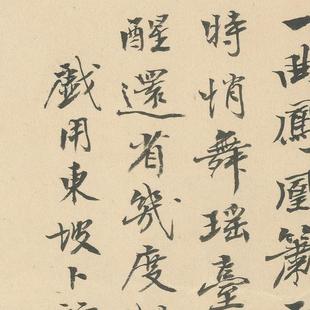 一曲鳳凰簫
時悄舞瑤臺
醒還省幾度
戲用東坡卜